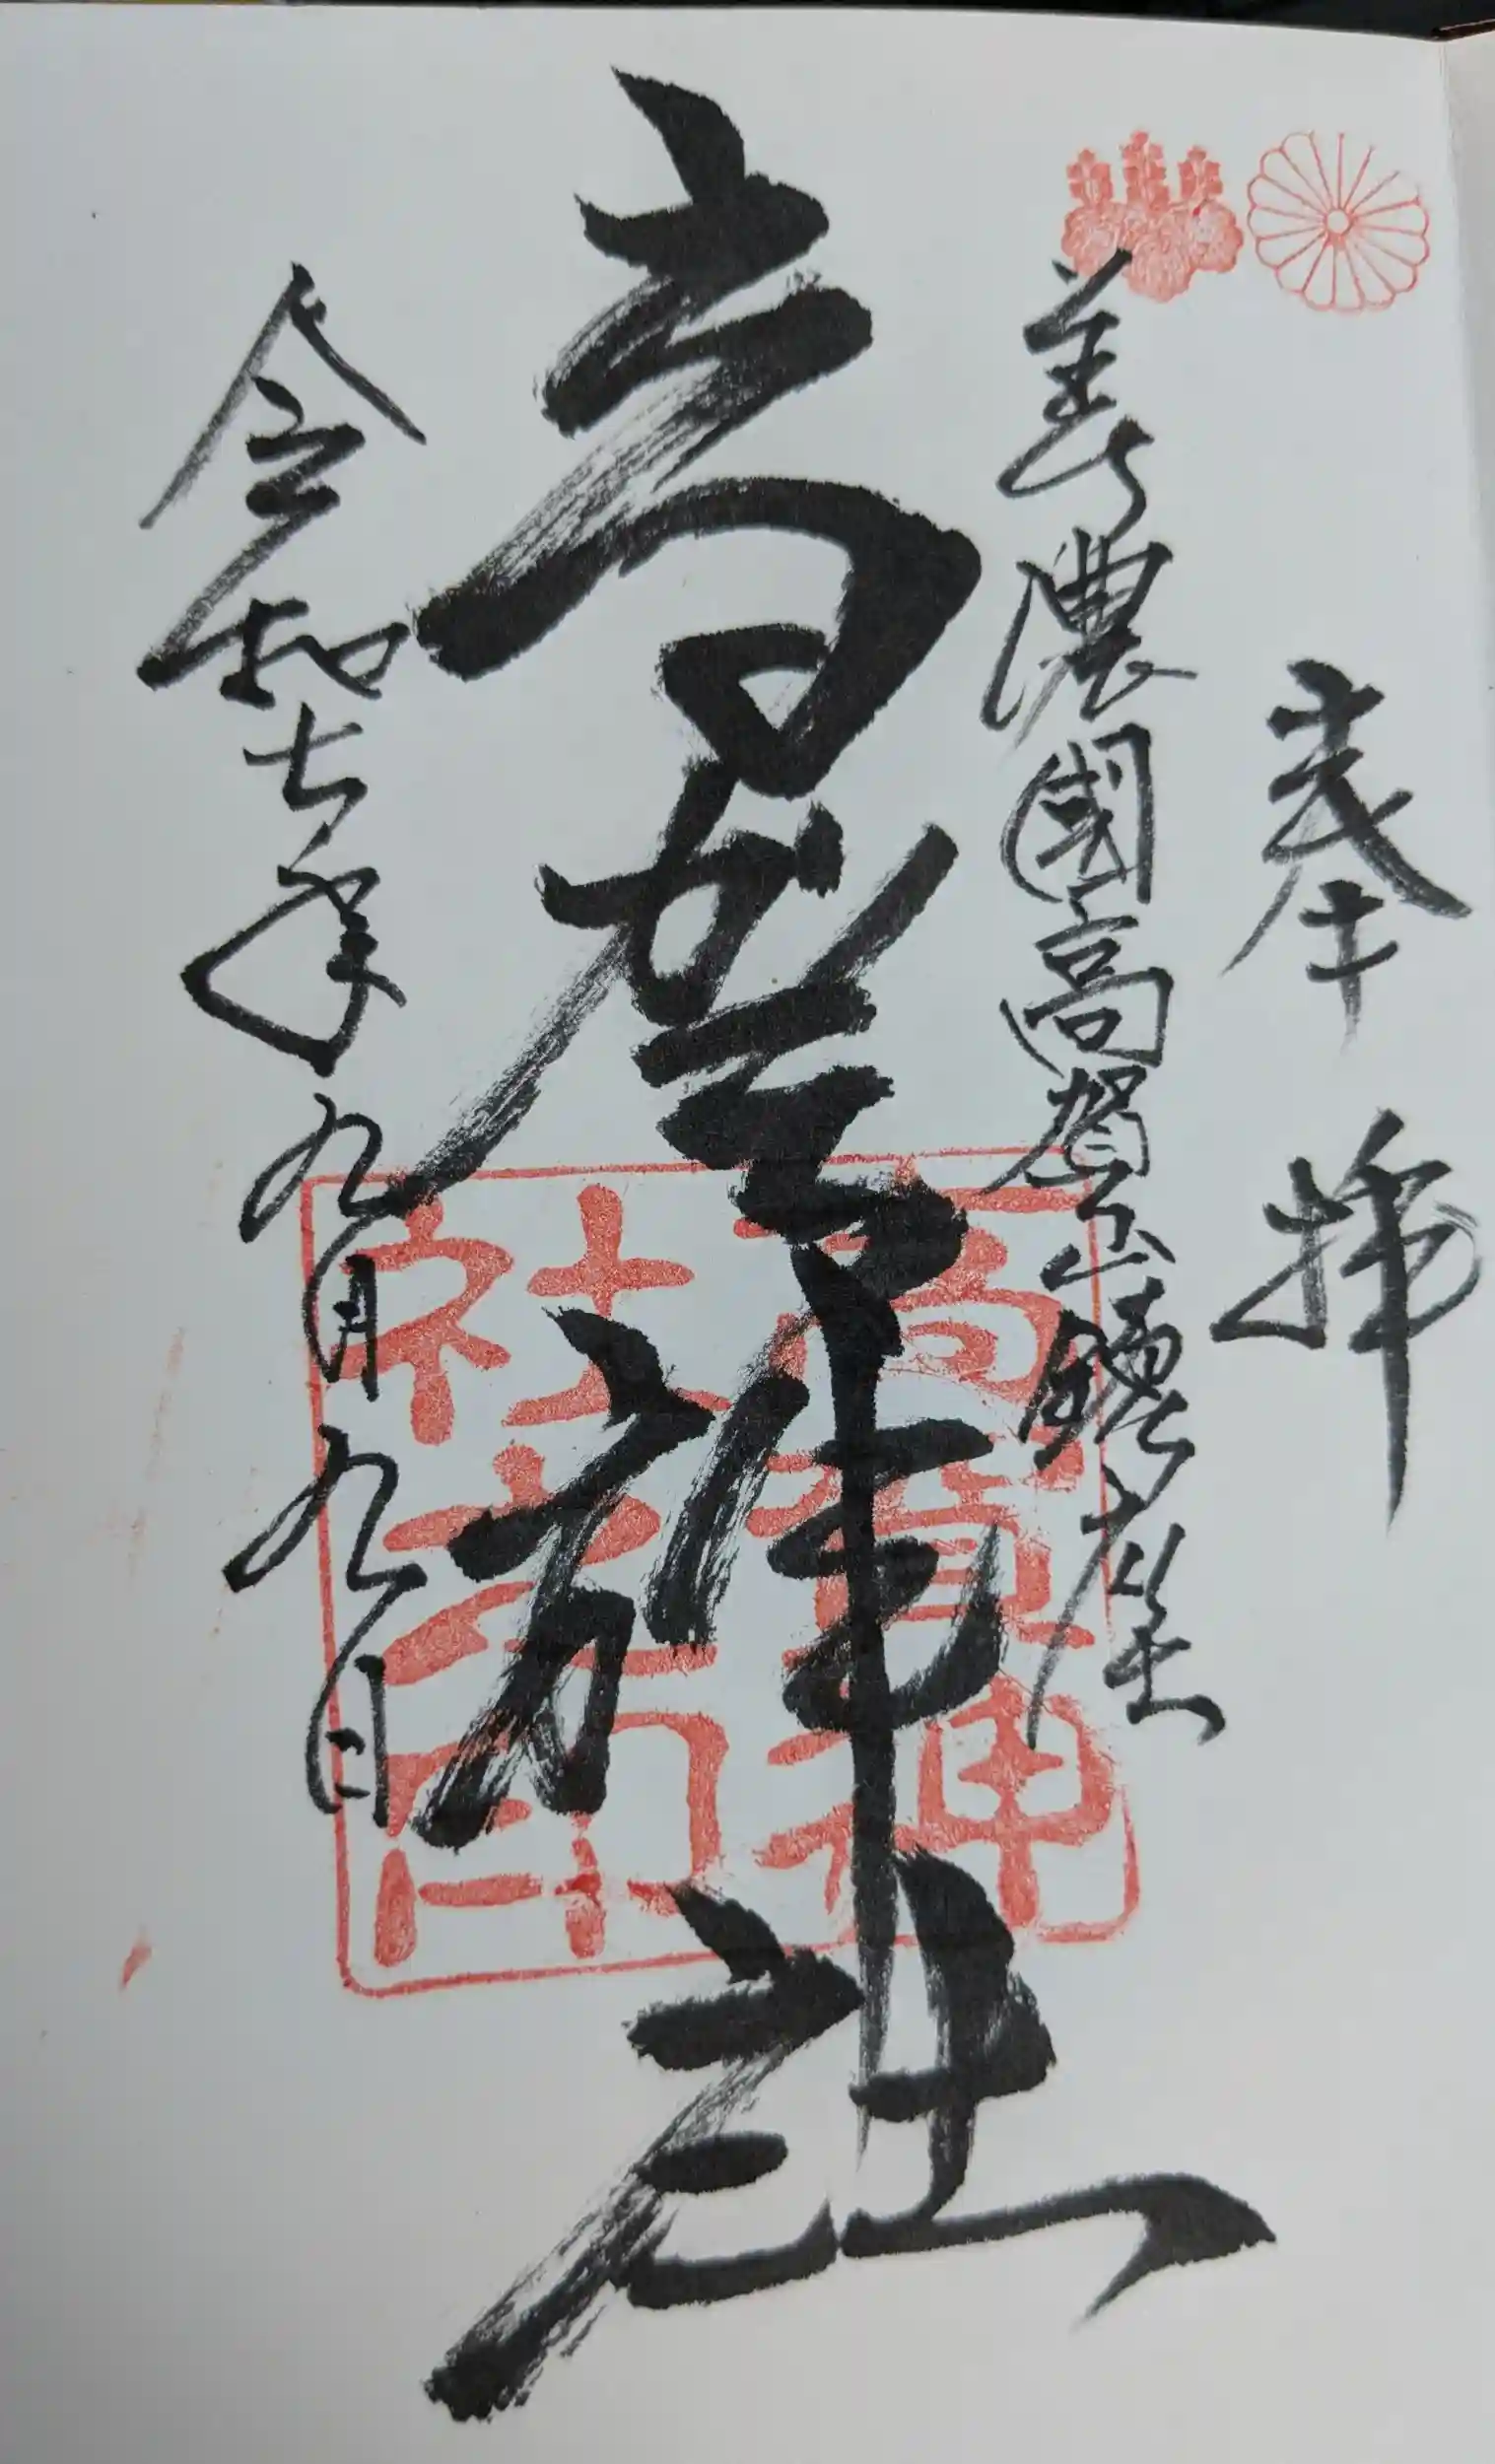 奉拝
美濃國高賀山鎮座
高賀神社
令和七年九月九日
高賀神
社玄𠮷印